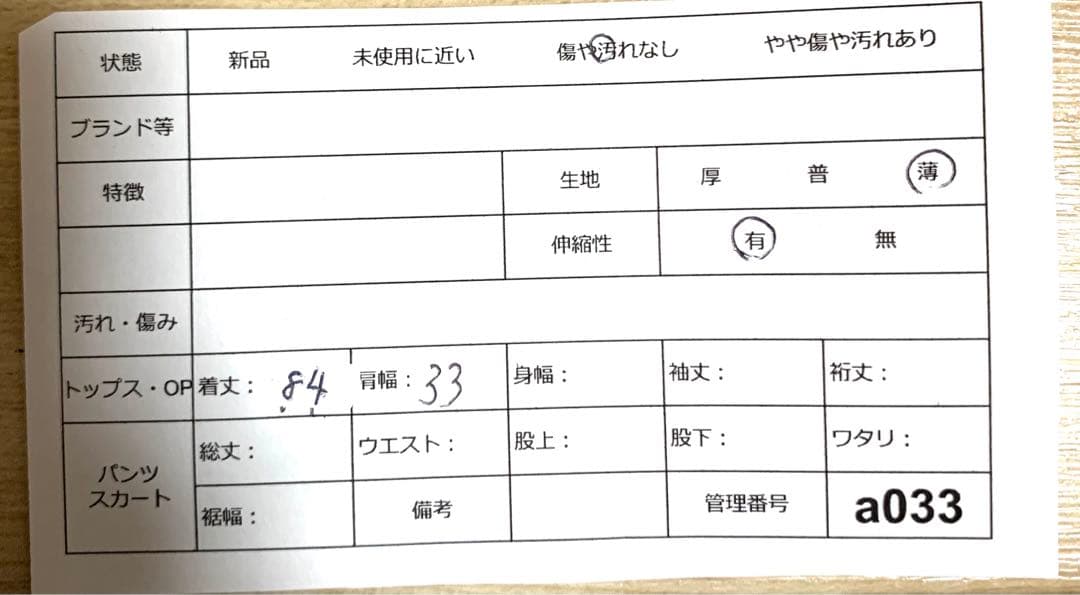 状態 新品 未使用に近い 傷や汚れなし やや傷や汚れあり
ブランド等
特徴 生地 厚 普 薄
伸縮性 有 無
汚れ・傷み
トップス・OP 着丈： 84 肩幅： 33 身幅： 袖丈： 裄丈：
パンツ
スカート
総丈： ウエスト： 股上： 股下： ワタリ：
裾幅： 備考 管理番号 a033